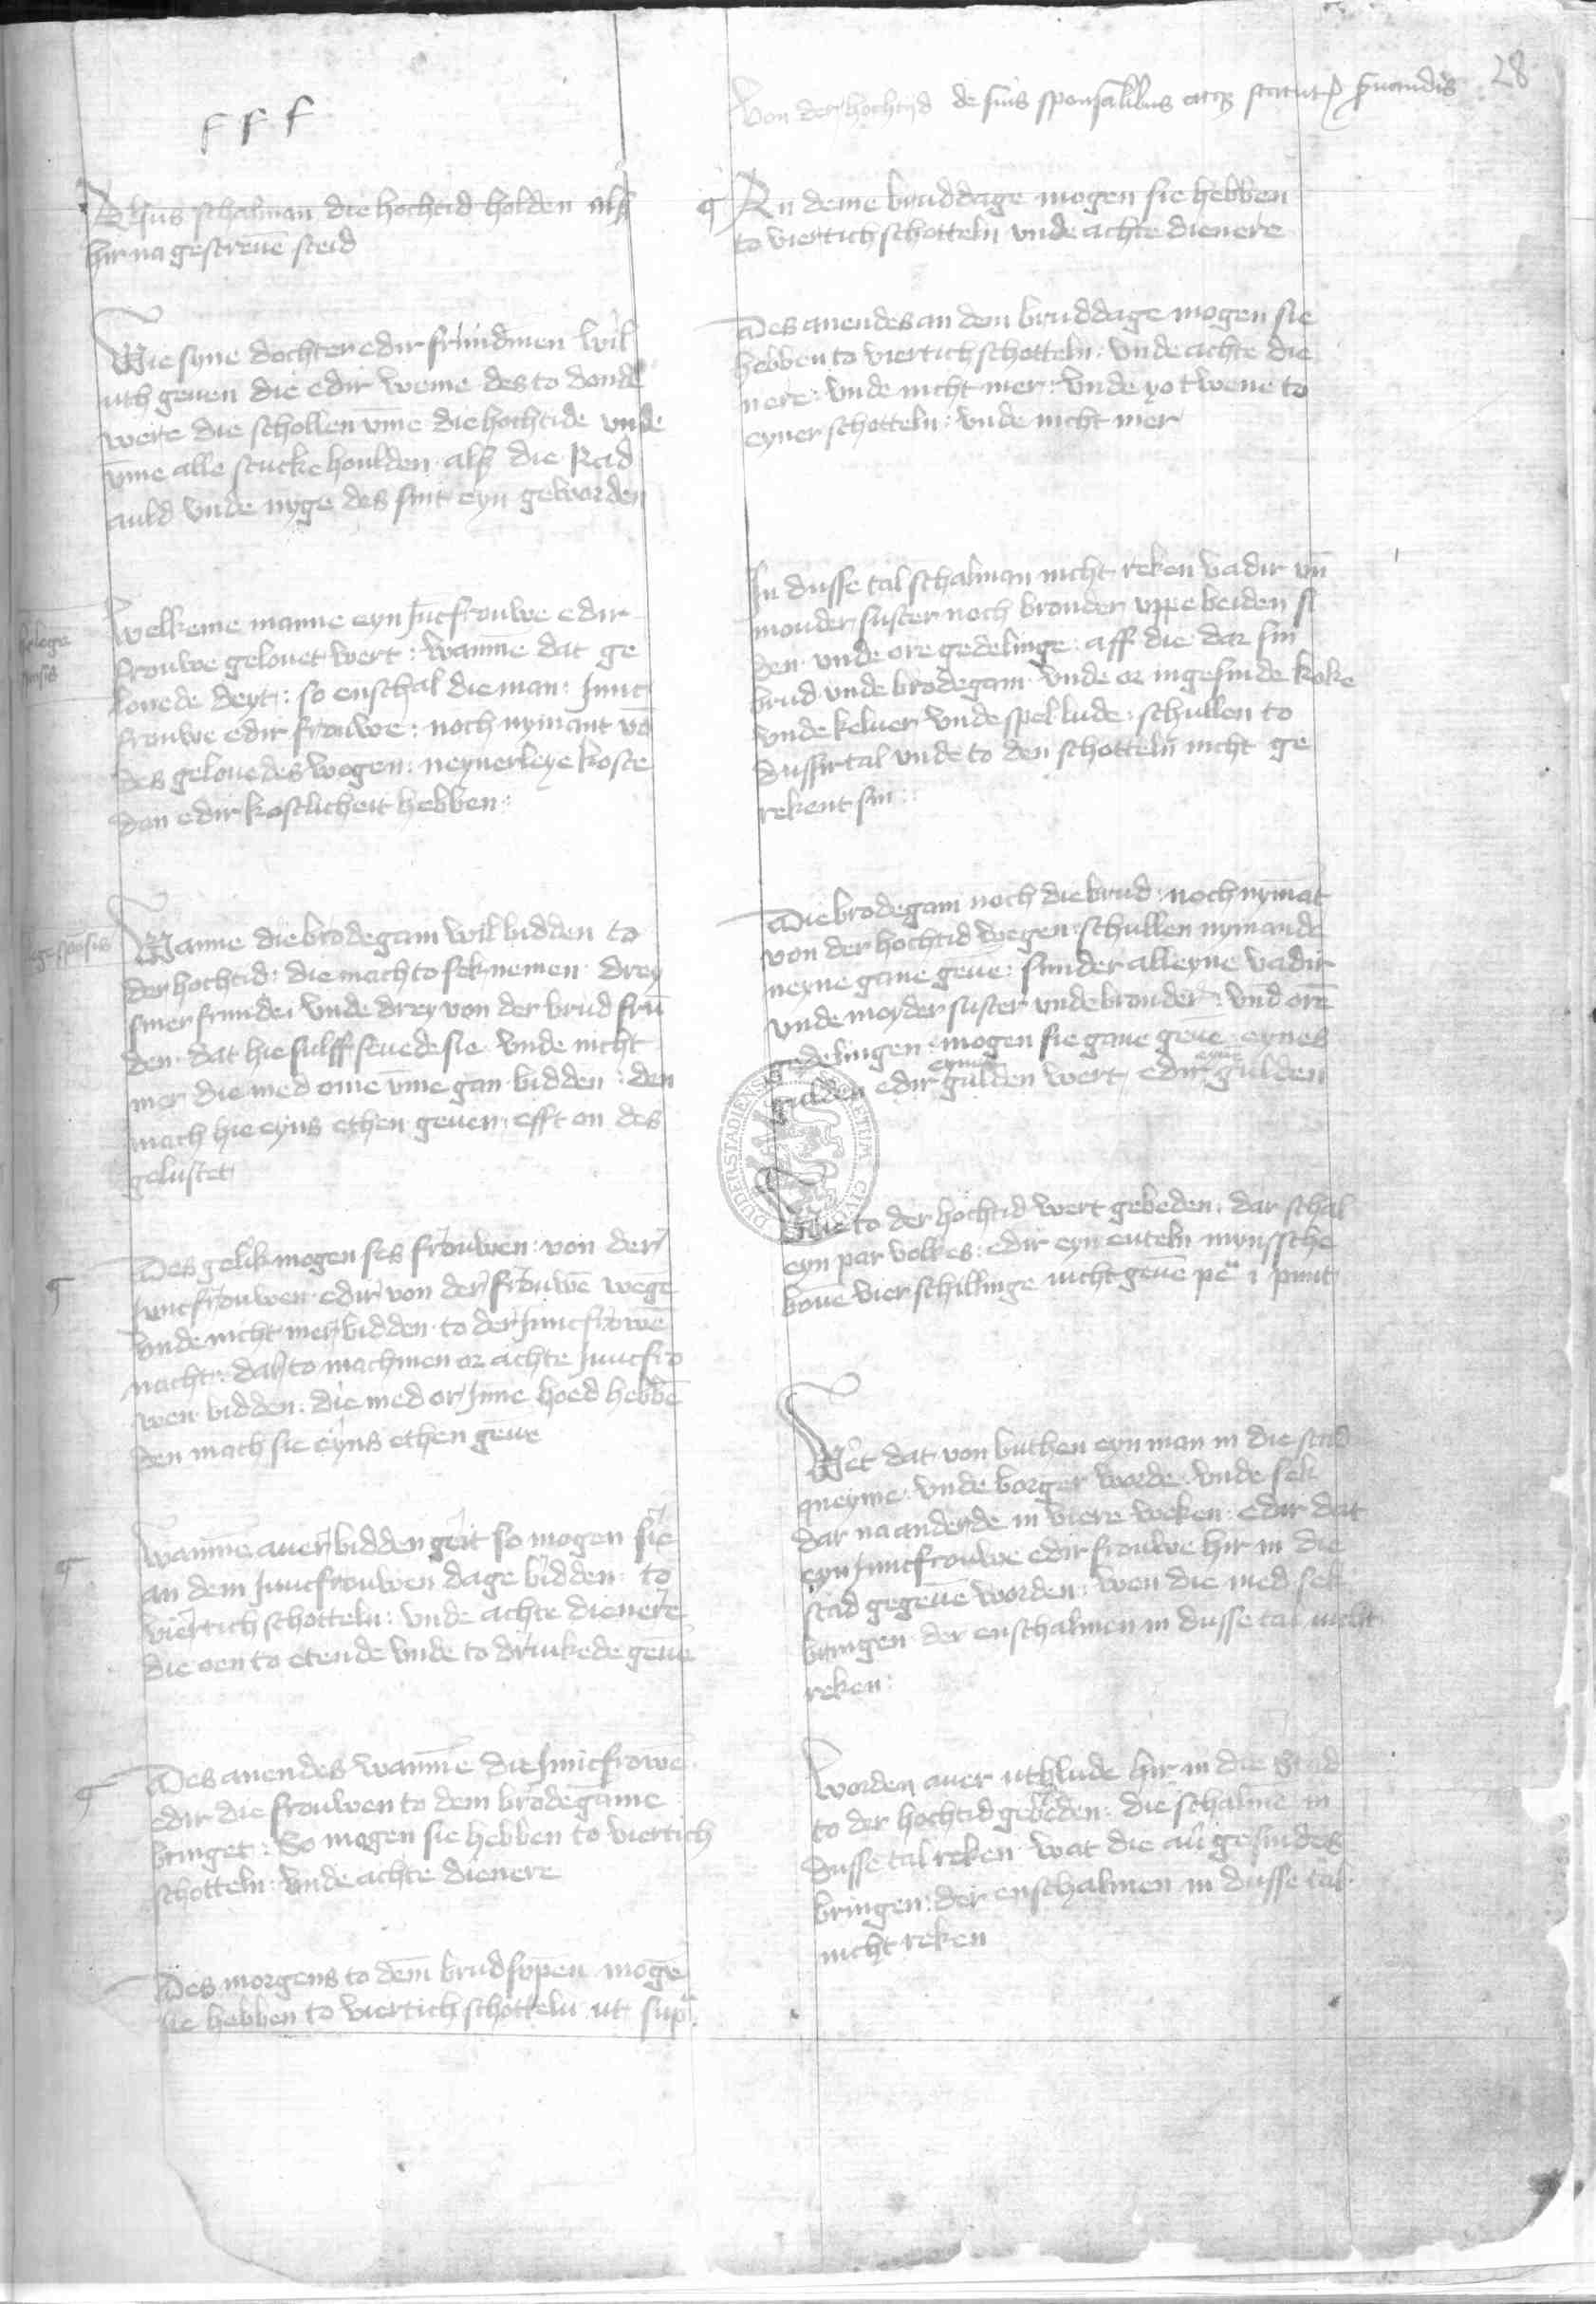 28
Von der hochtijd de suis sponsalibus atque statutis
f f f
Alsus schalman die hochtid holden alß
hir na gescreuē steid
Wie syne dochter edir frundinen wil
uth geuen die edir weme des to donde
were die schollen vm̄e die hochtide vnde
vm̄e alle stucke houlden alß die Rad
auld vnde nyge des sint eyn geworden
Welkeme manne eyn Juncfrouwe edir
frouwe gelouet wert : wann̄e dat ge
louede deyt : so enschal die man : Junc
frouwe edir frouwe : noch nymant vō
des gelouedes wegen : neynerleye koste
don edir kostlicheit hebben :
Wanne die brodegam wil bidden to
der hochtid : die mach to sek nemen drey
siner frunde : vnde drey von der brud frū
den dat hie sulff seuede sie vnde nicht
mer die med ome vm̄e gan bidden : den
mach hie eyns ethen geuen : efft on des
gelustet
Des gelik mogen ses frouwen : von der
Juncfrouwen edir von der frouwē wegē
vnde nicht mer bidden to der Juncfrowē
nacht : dar to mach men or achte Juncfro
wen bidden : die med or Inne hoed hebbē
den mach sie eyns ethen geūe
Wann̄e auer bidden geit so mogen sie
an dem Juncfrouwen dage bidden : to
viertich schotteln : vnde achte dienere
die oen to etende vnde to drinkede geūe
Des auendes wann̄e die Juncfrowē
edir die frouwen to dem brodegame
bringet : So mogen sie hebben to viertich
schotteln : vnde achte dienere
Des morgens to dem̄ brudsupen mogē
sie hebben to viertich schotteln ut sup
An deme bruddage mogen sie hebben
to viertich schotteln vnde achte dienere
Des auendes an dem bruddage mogen sie
hebben to viertich schotteln : vnde achte die
nere : vnde nicht mer : vnde yo twene to
eyner schotteln : vnde nicht mer
In dusse tal schalman nicht reken vadir vn̄
mouder suster noch brouder vppe beiden si
den vnde ore gedelinge : aff die dar sin
brud vnde brodegam vnde or ingesinde koke
vnde keluer vnde spellude : schullen to
dussir tal vnde to den schotteln nicht ge
rekent sin :
Die brodegam noch die brud : noch nymāt
von der hochtid wegen : schullen nymande
neyne gaue geūe : sunder alleyne vadir
vnde moyder suster vnde brouder : vnd orē
gedelingen : mogen sie gaue geūe eynes
gulden edir gulden wert edir gulden
Wie to der hochtid wert gebeden : dar schal
eyn par volkes : edir eyn enteln mynssche
bouē vier schillinge nicht geuē
Wēt dat von buthen eyn man in die stad
queyme : vnde borger worde : vnde sek
dar na anderde in viere weken : edir dat
eyn Juncfrouwe edir frouwe hir in die
stad gegeuē worden : wen die med sek
bringen der enschalmen in dusse tal nicht
reken :
Worden auer uthlude hir in die Stad
to der hochtid gebeden : die schalmē in
dusse tal reken wat die an gesindes
bringen : der enschalmen in dusse tal
nicht reken